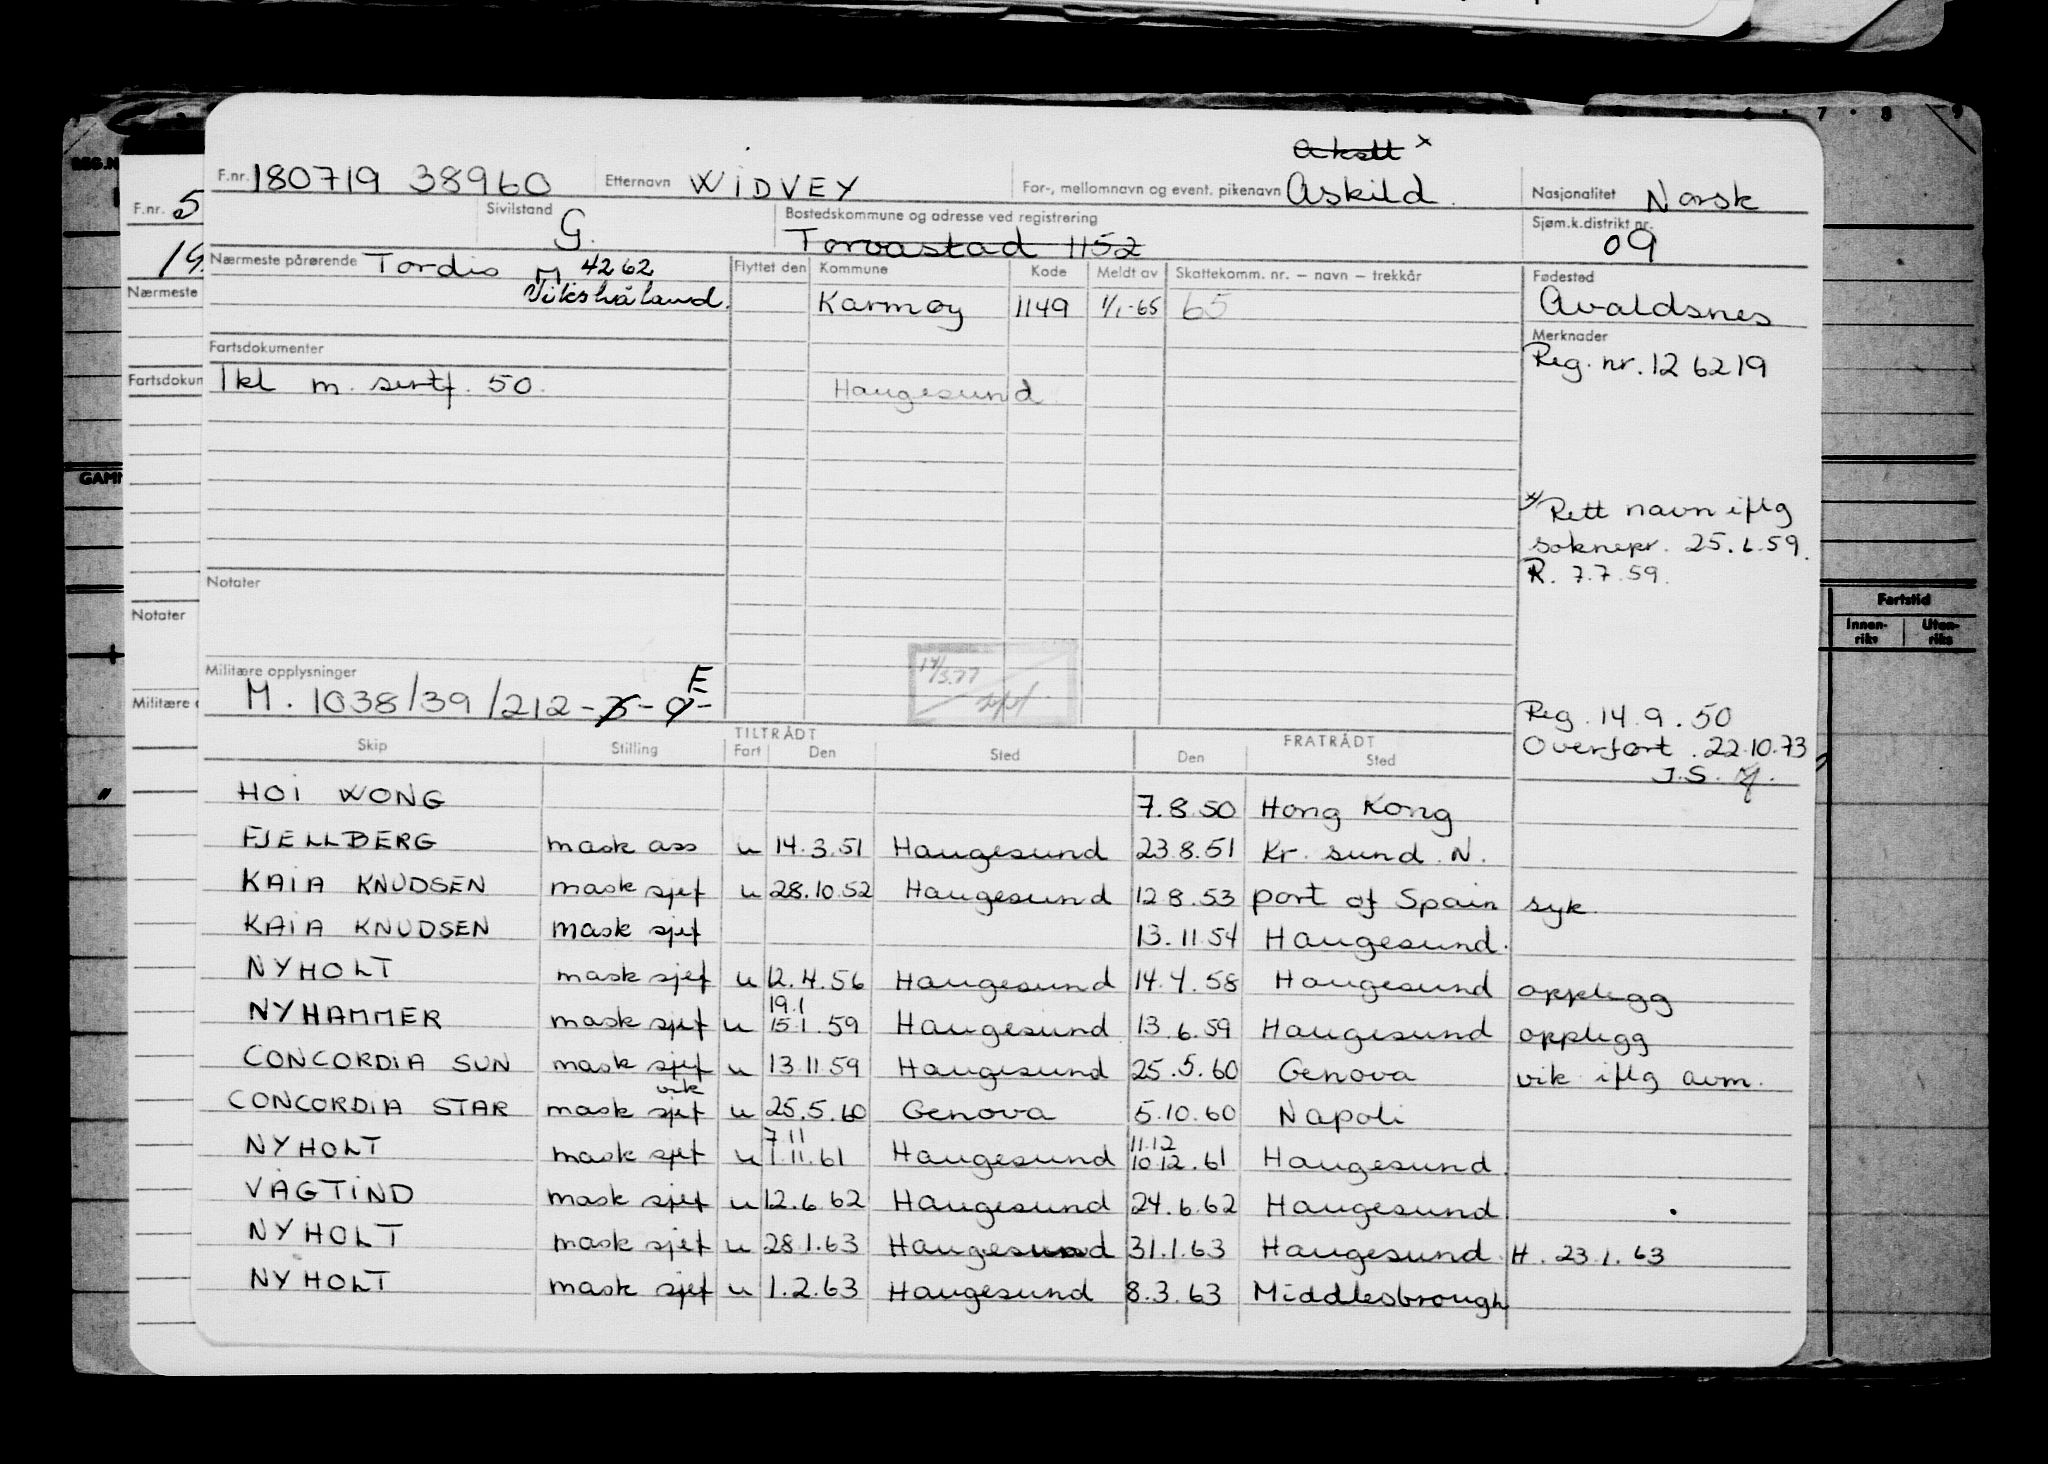 Akstt x
F.nr. 180719 38960 Etternavn WIDVEY For-, mellomnavn og event. pikenavn Askild. Nasjonalitet Norsk
Sivilstand G. Bostedskommune og adresse ved registrering Torvastad 1152 Sjøm.k.distrikt nr. 09
Nærmeste pårørende Tordis M 4262 Flyttet den Kommune Kode Meldt av Skattekomm. nr. – navn – trekkår Fødested
Vikshåland. Karmøy 1149 1/1-65 65 Avaldsnes
Merknader
Fartsdokumenter Reg. nr. 126219
1kl m. sertf. 50. Haugesund
x/ Rett navn iflg
soknepr. 25.6.59.
Notater R. 7.7.59.
Militære opplysninger 17/3.77
M. 1038/39/212-5-9- E
Reg. 14.9.50
Overført. 22.10.73
J.S.
TILTRÅDT FRATRÅDT
Skip Stilling Fart Den Sted Den Sted
HOI WONG 7.8.50 Hong Kong
FJELLBERG mask ass u 14.3.51 Haugesund 23.8.51 Kr. sund. N.
KAIA KNUDSEN mask sjef u 28.10.52 Haugesund 12.8.53 port of Spain syk
KAIA KNUDSEN mask sjef 13.11.54 Haugesund.
NYHOLT mask sjef u 12.4.56 Haugesund 14.4.58 Haugesund opplegg
19.1
NYHAMMER mask sjef u 15.1.59 Haugesund 13.6.59 Haugesund opplegg
CONCORDIA SUN mask sjef u 13.11.59 Haugesund 25.5.60 Genova vik iflg avm.
vik
CONCORDIA STAR mask sjef u 25.5.60 Genova 5.10.60 Napoli
7.11 11.12
NYHOLT mask sjef u 1.11.61 Haugesund 10.12.61 Haugesund.
VÅGTIND mask sjef u 12.6.62 Haugesund 24.6.62 Haugesund.
NYHOLT mask sjef u 28.1.63 Haugesund 31.1.63 Haugesund. H. 23.1.63
NYHOLT mask sjef u 1.2.63 Haugesund 8.3.63 Middlesbrough
F.nr. 5
19
Nærmeste
Fartsdokun
Notater
Militære
GAM
6 7 8 9
Fartstid
Innen-riks Uten-riks